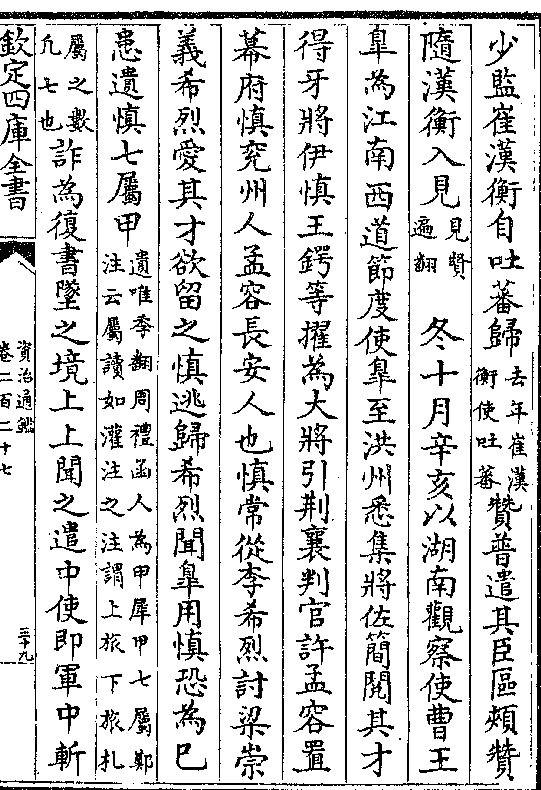 少監崔漢衡自吐蕃歸去年崔漢衡使吐蕃贊普遣其臣區頰贊
隨漢衡入見見賢遍翻 冬十月辛亥以湖南觀察使曹王
臯為江南西道節度使臯至洪州悉集將佐簡閱其才
得牙將伊慎王鍔等擢為大將引荆襄判官許孟容置
幕府慎兖州人孟容長安人也慎常從李希烈討梁崇
義希烈愛其才欲留之慎逃歸希烈聞臯用慎恐為已
患遺慎七屬甲遺唯季翻周禮函人為甲犀甲七屬鄭注云屬讀如灌注之注謂上旅下旅札
屬之數凡七也詐為復書墜之境上上聞之遣中使即軍中斬
欽定四庫全書
資治通鑑
卷二百二十七
三十九